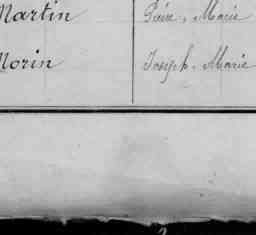 Martin Pierre, Marie
Morin Joseph, Marie